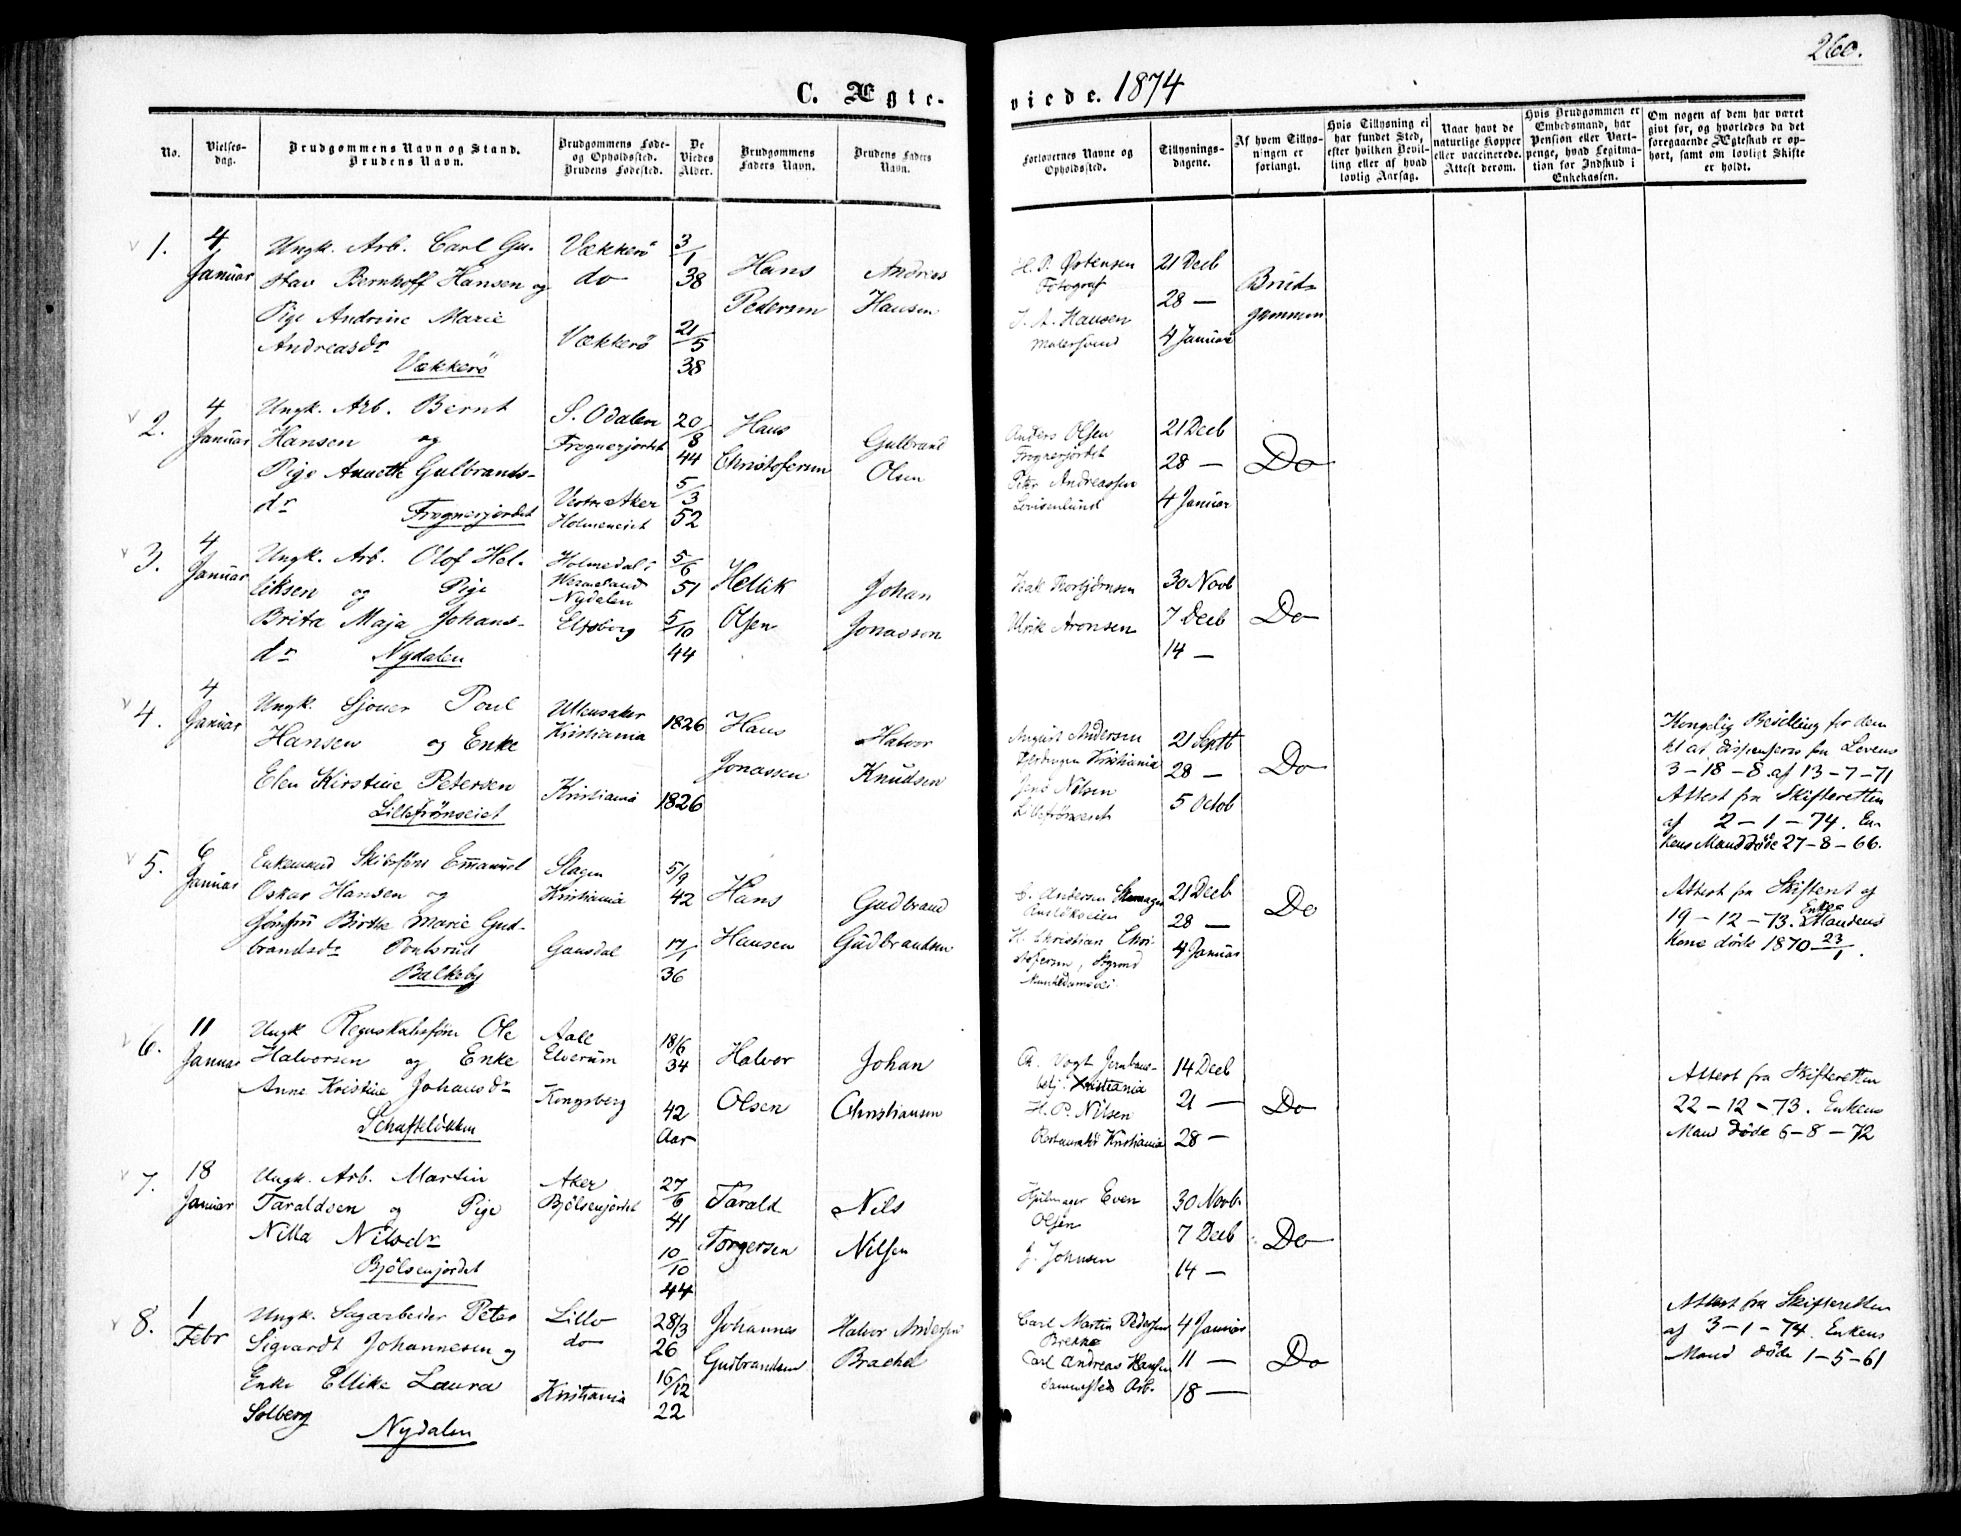 260.
C. Ægte-
viede. 1874
No.
Vielses-
dag.
Brudgommens Navn og Stand.
Brudens Navn.
Brudgommens Føde-
og Opholdssted.
Brudens Fødested.
De
Viedes
Alder.
Brudgommens
Faders Navn.
Brudens Faders
Navn.
Forlovernes Navne og
Opholdssted.
Tillysnings-
dagene.
Af hvem Tillys-
ningen er
forlangt.
Hvis Tillysning ei
har fundet Sted,
efter hvilken Bevil-
ling eller af hvad
lovlig Aarsag.
Naar havt de
naturlige Kopper
eller vaccinerede.
Attest derom.
Hvis Brudgommen er
Embedsmand, har
Pension eller Vart-
penge, hvad Legitima-
tion for Indskud i
Enkekassen.
Om nogen af dem har været
givt før, og hvorledes da det
foregaaende Ægteskab er op-
hørt, samt om lovligt Skifte
er holdt.
1.
4
Januar
Ungk. Arb. Carl Gu-
stav Bernhoff Hansen og
Pige Andrine Marie
Andreasdr
Vækkerö
Vækkerö
do
Vækkerö
3/1
38
21/5
38
Hans
Pedersen
Andreas
Hansen
H. P. Østensen
Fotograf
J. A. Hansen
Malersvend
21 Decb
28 —
4 Januar
Brud-
gommen
2.
4
Januar
Ungk. Arb. Bernt
Hansen og
Pige Annette Gulbrands-
dr
Frognerjordet
S. Odalen
Frognerjordet
Vestre Aker
Holmeneiet
20/8
44
5/3
52
Hans
Christofersen
Gulbrand
Olsen
Anders Olsen
Frognerjordet
Peter Andreassen
Lovisenlund
21 Decb
28 —
4 Januar
Do
3.
4
Januar
Ungk. Arb. Olof Hel-
liksen og Pige
Brita Maja Johans-
dr Nydalen
Holmedal i
Wermeland
Nydalen
Elfsborg
5/6
51
5/10
44
Hellik
Olsen
Johan
Jonasson
Isak Thorbjörnsen
Ulrik Aronsen
30 Novb
7 Decb
14 —
Do
4.
4
Januar
Ungk. Sjouer Poul
Hansen og Enke
Elen Kirstine Petersen
Lillefrönseiet
Ullensaker
Kristiania
Kristiania
1826
1826
Hans
Jonassen
Halvor
Knudsen
August Andersen
Kristiania
Jens Nilsen
Lillefrönseiet
21 Septb
28 —
5 Octob
Do
Kongelig Bevilling for dem
til at dispenseres fra Lovens
3-18-8 af 13-7-71
Attest fra Skifteretten
af 2-1-74. En-
kens Mand döde 27-8-66.
5.
6
Januar
Enkemand Skibsförer Emanuel
Oskar Hansen og
Jomfru Birthe Marie Gud-
brandsdr Pontsrud
Balkeby
Slagen
Kristiania
Gausdal
5/9
42
17/1
36
Hans
Hansen
Gudbrand
Gudbrandsen
C. Andersen Skomager
Anslöksveien
H. Christian Chri-
stofersen,
Munkedamsvei
21 Decb
28 —
4 Januar
Do
Attest fra Skifteret af
19-12-73. Enke-Mandens
Kone döde 1870 23/1.
6.
11
Januar
Ungk. Regnskabsförer Ole
Halvorsen og Enke
Anne Kristine Johansdr
Schafteløkken
Aall
Elverum
Kongsberg
18/6
34
42
Aar
Halvor
Olsen
Johan
Christiansen
A. Vogt Jernbane-
betj. Kristiania
H. P. Nilsen
Restauratör Kristiania
14 Decb
21 —
28 —
Do
Attest fra Skifteretten
22-12-73. Enkens
Mand döde 6-8-72
7.
18
Januar
Ungk. Arb. Martin
Taraldsen og Pige
Nilla Nilsdr
Bjölsenjordet
Aker
Bjölsenjordet
27/6
41
10/10
44
Tarald
Torgersen
Nils
Nilsen
Hjulmager Even
Olsen
J. Johnsen
30 Novb.
7 Decb
14 —
Do
8.
1
Febr
Ungk. Sagarbeider Peter
Sigvardt Johannesen og
Enke Ellike Laura
Solberg
Nydalen
Lillo
do
Kristiania
28/3
26
16/12
22
Johannes
Gudbrandsen
Halvor Andersen
Brachel
Carl Martin Pedersen
Brekke
Carl Andreas Hansen
sammesteds Arb.
4 Januar
11 —
18 —
Do
Attest fra Skifteretten
af 3-1-74. Enkens
Mand döde 1-5-61